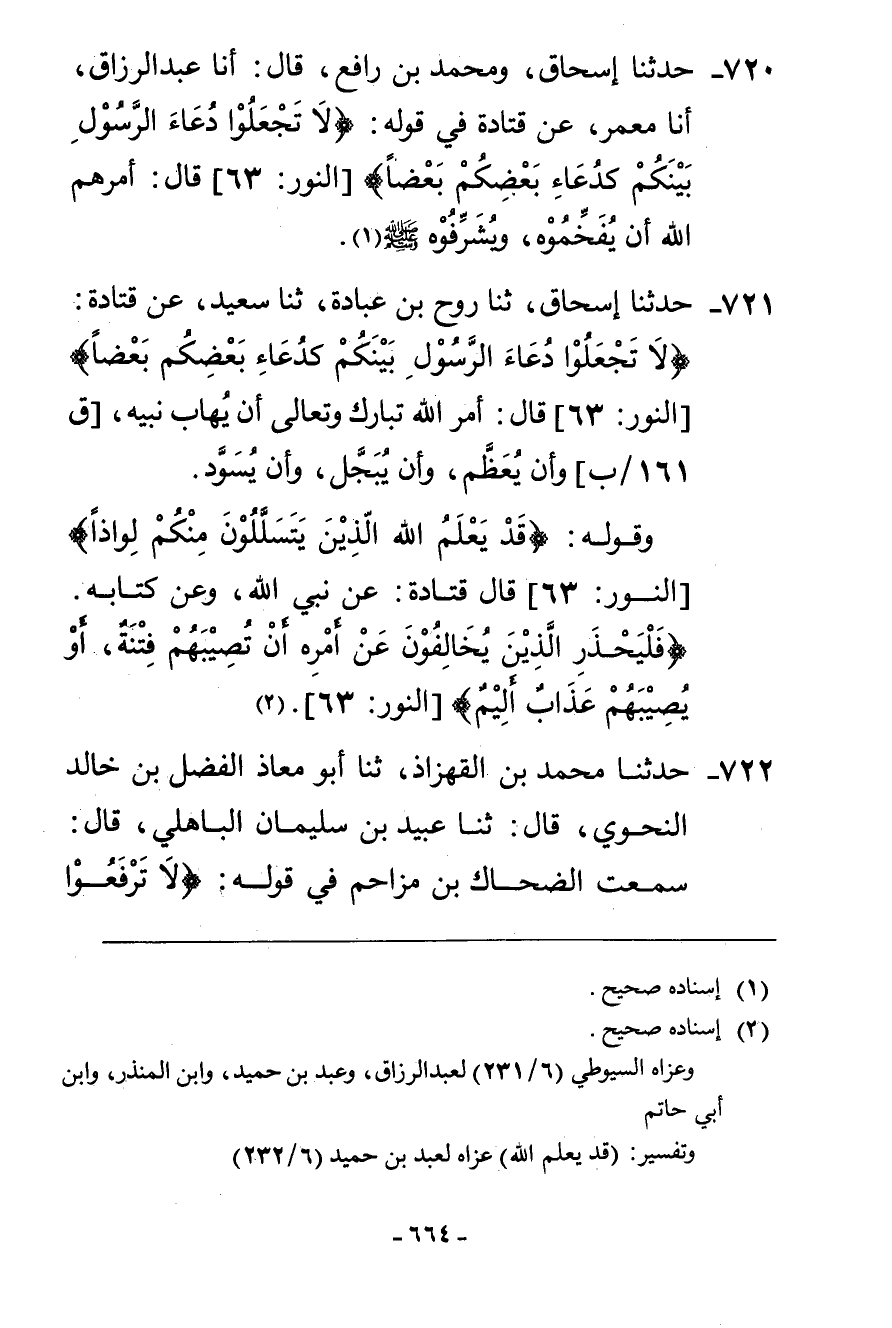 ٧٢٠ـ حدثنا إسحاق، ومحمد بن رافع، قال: أنا عبدالرزاق،
أنا معمر، عن قتادة في قوله: ﴿لَا تَجْعَلُوْا دُعَاءَ الرَّسُوْلِ
بَيْنَكُمْ كدُعَاءِ بَعْضِكُمْ بَعْضاً﴾ [النور: ٦٣] قال: أمرهم
الله أن يُفَخِّمُوْه، ويُشَرِّفُوْه ﷺ(١).
٧٢١ـ حدثنا إسحاق، ثنا روح بن عبادة، ثنا سعيد، عن قتادة:
﴿لَا تَجْعَلُوْا دُعَاءَ الرَّسُوْلِ بَيْنَكُمْ كدُعَاءِ بَعْضِكُم بَعْضاً﴾
[النور: ٦٣] قال: أمر الله تبارك وتعالى أن يُهاب نبيه، [ق
١٦١/ب] وأن يُعَظَّم، وأن يُبَجَّل، وأن يُسَوَّد.
وقوله: ﴿قَدْ يَعْلَمُ الله الّذِيْنَ يَتَسَلَّلُوْنَ مِنْكُمْ لِواذاً﴾
[النور: ٦٣] قال قتادة: عن نبي الله، وعن كتابه.
﴿فَلْيَحْذَرِ الَّذِيْنَ يُخَالِفُوْنَ عَنْ أَمْرِه أَنْ تُصِيْبَهُمْ فِتْنَةٌ، أَوْ
يُصِيْبَهُمْ عَذَابٌ أَلِيْمٌ﴾ [النور: ٦٣]. (٢)
٧٢٢ـ حدثنا محمد بن القهزاذ، ثنا أبو معاذ الفضل بن خالد
النحوي، قال: ثنا عبيد بن سليمان الباهلي، قال:
سمعت الضحاك بن مزاحم في قوله: ﴿لَا تَرْفَعُوْا
(١) إسناده صحيح.
(٢) إسناده صحيح.
وعزاه السيوطي (٦/ ٢٣١) لعبدالرزاق، وعبد بن حميد، وابن المنذر، وابن
أبي حاتم
وتفسير: (قد يعلم الله) عزاه لعبد بن حميد (٦/ ٢٣٢)
- ٦٦٤ -